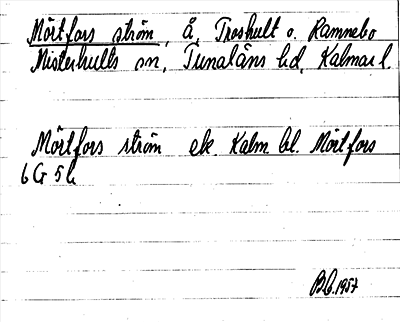 Mörtfors ström, å, Troshult o. Ramnebo
Misterhults sn, Tunaläns hd, Kalmar l.
Mörtfors ström ek. Kalm bl. Mörtfors
6 G 5 b
1957